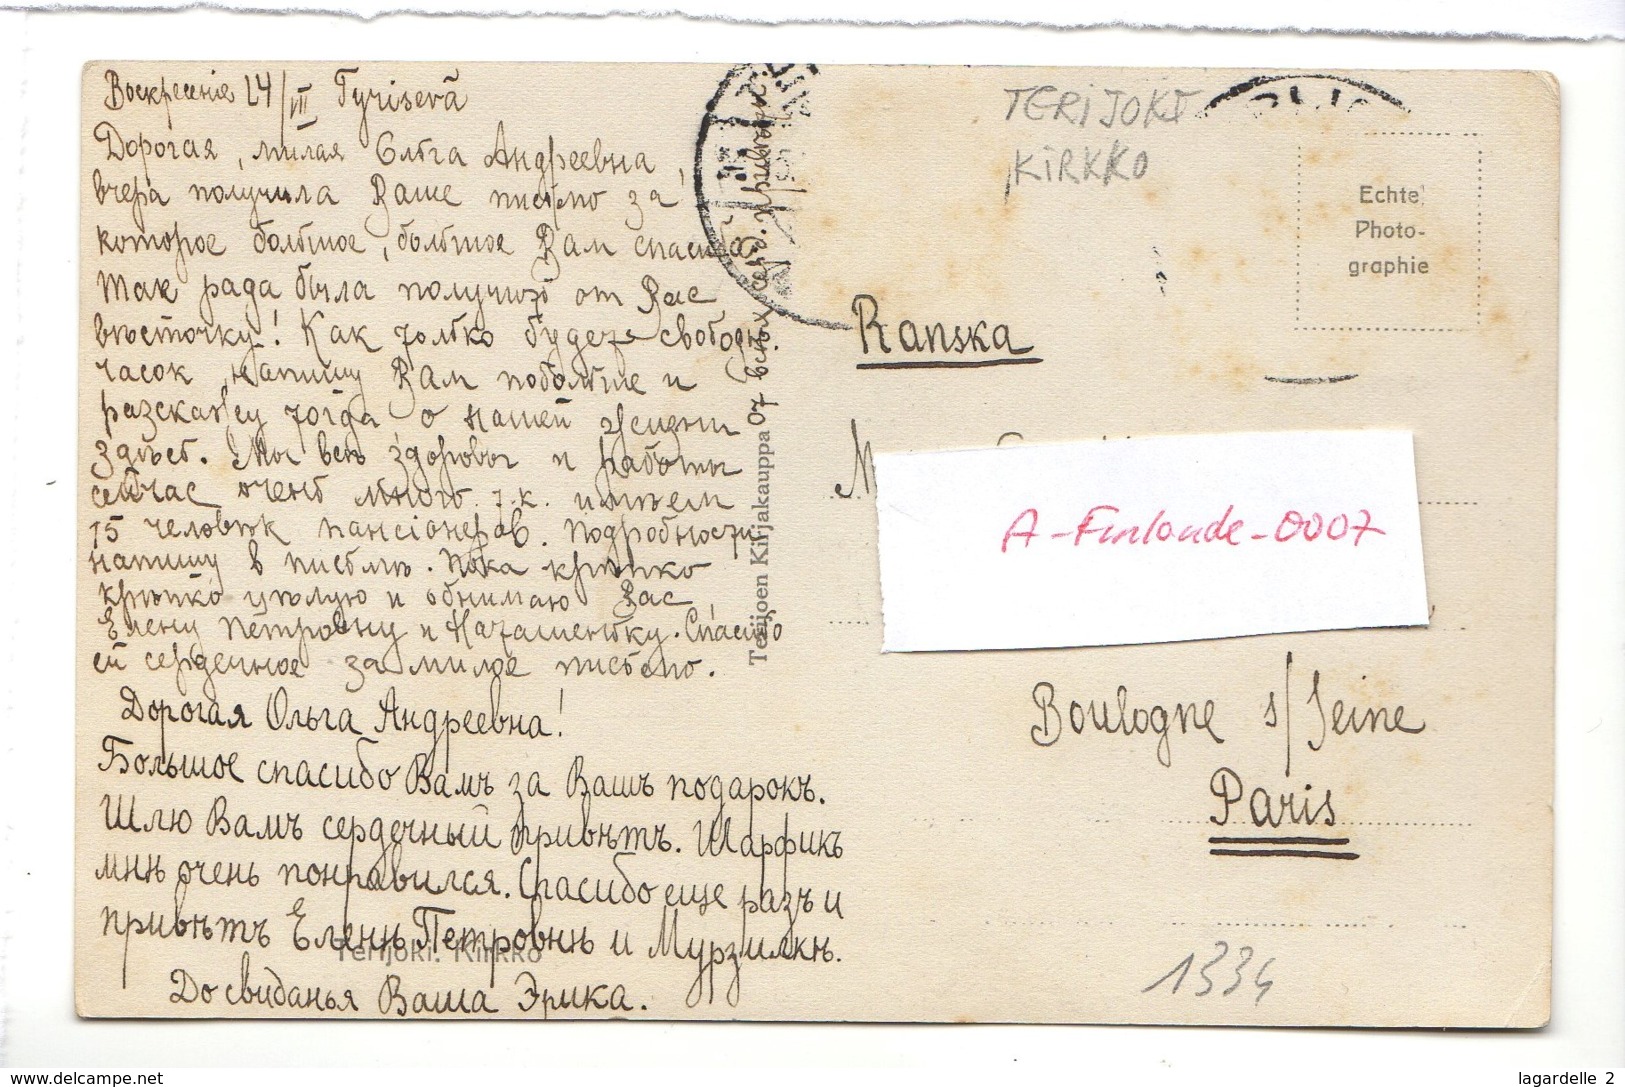 Воскресение 24/VII Tyrisevä
Дорогая, милая Ольга Андреевна,
вчера получила Ваше письмо за
которое большое, большое Вам спасибо
Так рада была получить от Вас
вѣсточку! Как только будет свободн.
часок напишу Вам побольше и
разскажу тогда о нашей жизни
здѣсь. Мы всѣ здоровы и работы
сейчас очень много т.к. имѣем
15 человѣк пансiонеров. Подробности
напишу в письмѣ. Пока крѣпко
крѣпко цѣлую и обнимаю Вас
Елену Петровну и Наташеньку. Спасибо
ей сердечное за милое письмо.
Дорогая Ольга Андреевна!
Большое спасибо Вамъ за Вашъ подарокъ.
Шлю Вамъ сердечный привѣтъ. Шарфикъ
мнѣ очень понравился. Спасибо еще разъ и
привѣтъ Еленѣ Петровнѣ и Мурзилкѣ.
До свиданья Ваша Эрика.
Terijoki. Kirkko
Terijoen Kirjakauppa 07
TERIJOKI
KIRKKO
Echte
Photo-
graphie
Ranska
A-Finlande-0007
Boulogne s/Seine
Paris
1334
www.delcampe.net
lagardelle 2